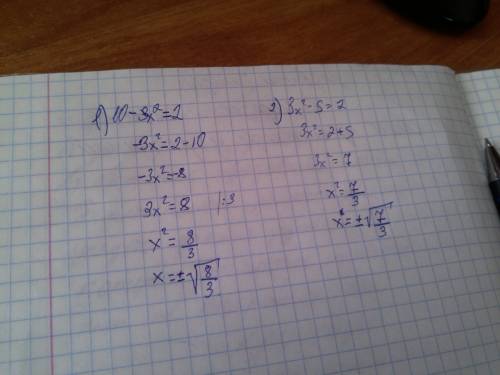 1) 10 - 3x² = 2
-3x² = 2 - 10
-3x² = -8
3x² = 8 |:3
x² = 8/3
x = ±√(8/3)
2) 3x² - 5 = 2
3x² = 2 + 5
3x² = 7
x² = 7/3
x = ±√(7/3)